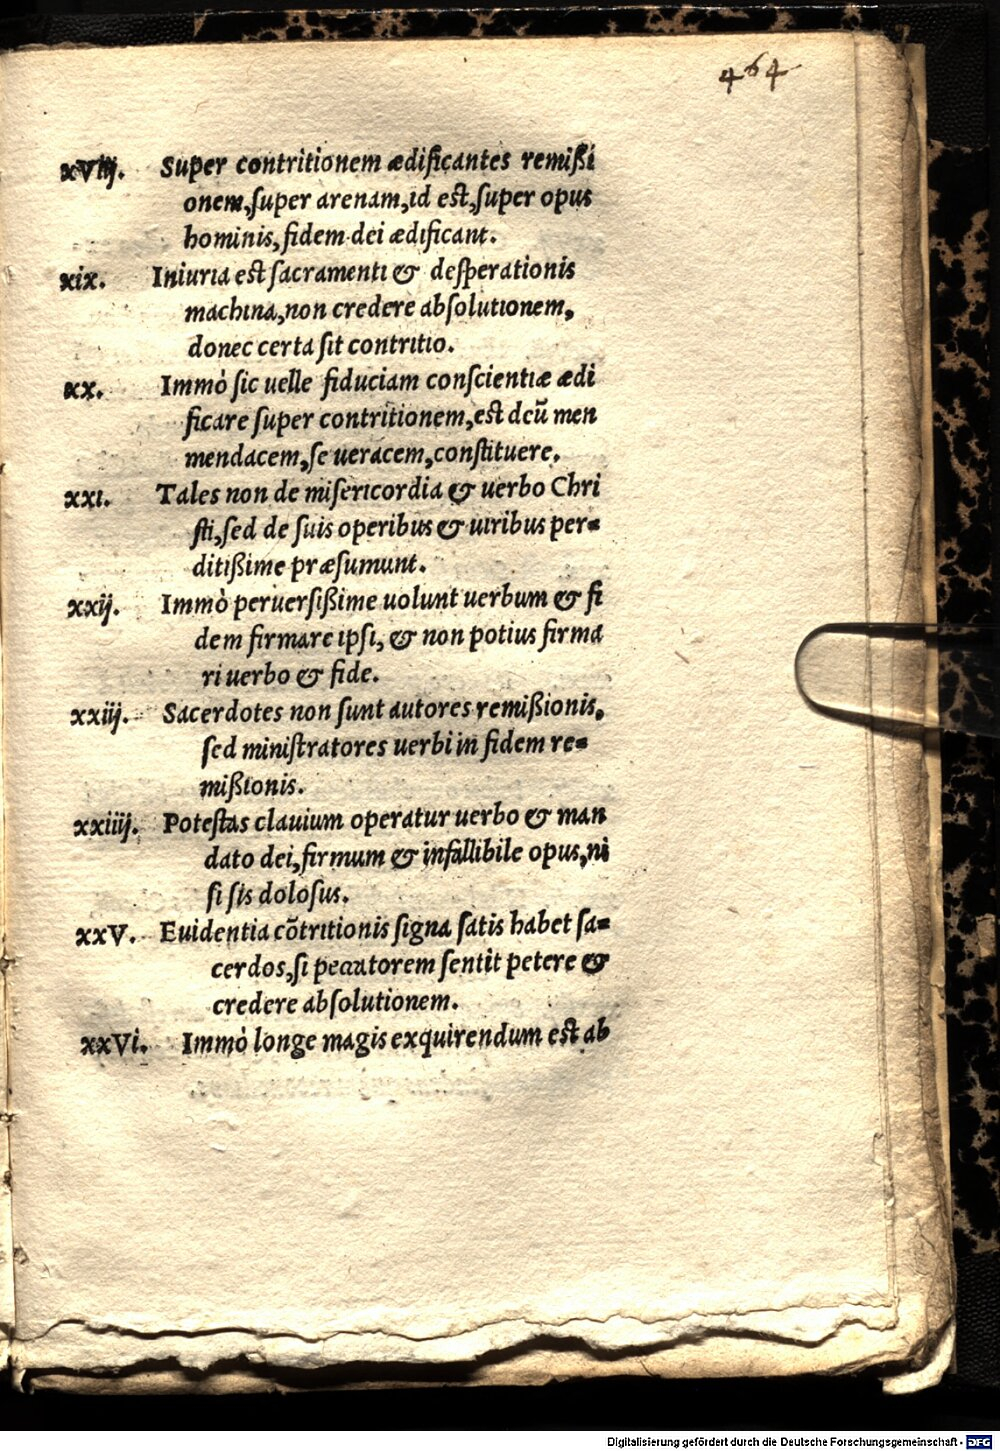 464
xviij. Super contritionem ædificantes remißi
onem, ſuper arenam, id est, ſuper opus
hominis, fidem dei ædificant.
xix. Iniuria est ſacramenti & deſperationis
machina, non credere abſolutionem,
donec certa ſit contritio.
xx. Immò ſic uelle fiduciam conſcientiæ ædi
ficare ſuper contritionem, est deũ men
mendacem, ſe ueracem, conſtituere.
xxi. Tales non de miſericordia & uerbo Chri
ſti, ſed de ſuis operibus & uiribus per=
ditißime præſumunt.
xxij. Immò peruerſißime uolunt uerbum & fi
dem firmare ipſi, & non potius firma
ri uerbo & fide.
xxiij. Sacerdotes non ſunt autores remißionis,
ſed miniſtratores uerbi in fidem re=
mißionis.
xxiiij. Poteſtas clauium operatur uerbo & man
dato dei, firmum & infallibile opus, ni
ſi ſis doloſus.
xxV. Euidentia cõtritionis ſigna ſatis habet ſa=
cerdos, ſi peccatorem ſentit petere &
credere abſolutionem.
xxVi. Immò longe magis exquirendum est ab
Digitalisierung gefördert durch die Deutsche Forschungsgemeinschaft - DFG